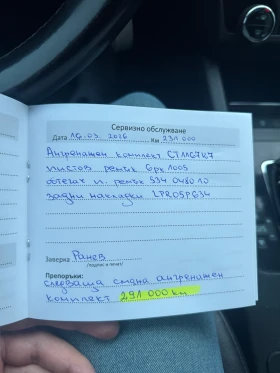 Сервизно обслужване
Дата 16.03.2026 км 231 000
Ангренажен комплект CT1167K7
пистов ремък 6pk1005
обтегач п. ремък 534 0480 10
задни накладки LPR05P634
Заверка Ранев
/подпис и печат/
Препоръки:
следваща смяна ангренажен
комплект 291 000 км